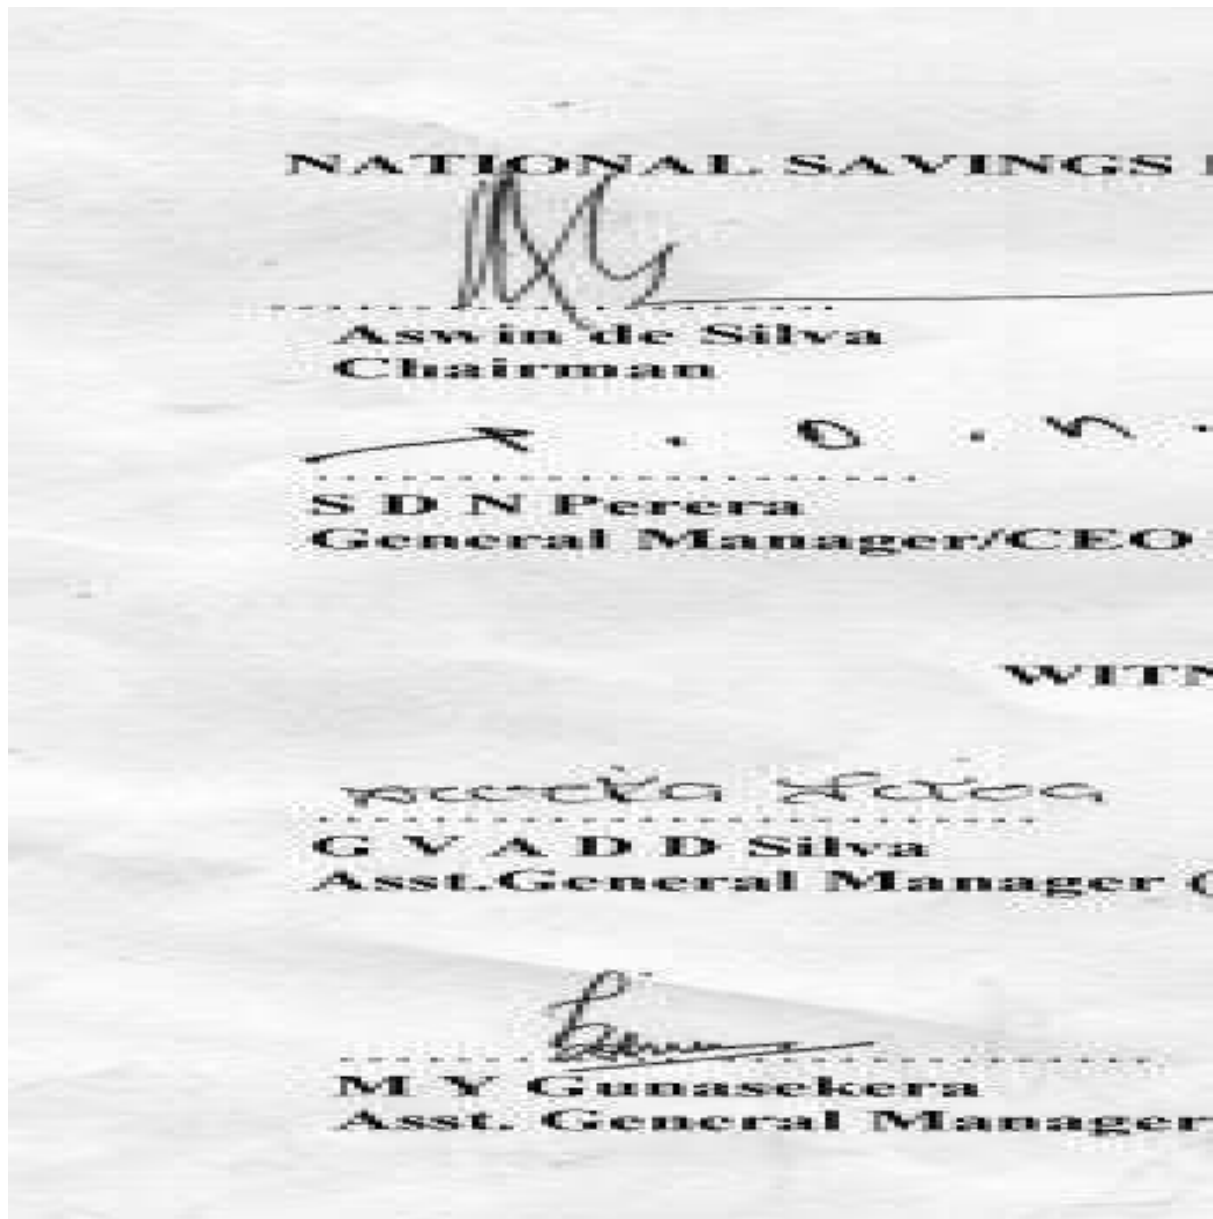 NATIONAL SAVINGS
Aswin de Silva
Chairman
S D N Perera
General Manager/CEO
G V A D D Silva
Asst.General Manager (
M Y Gunasekera
Asst. General Manager